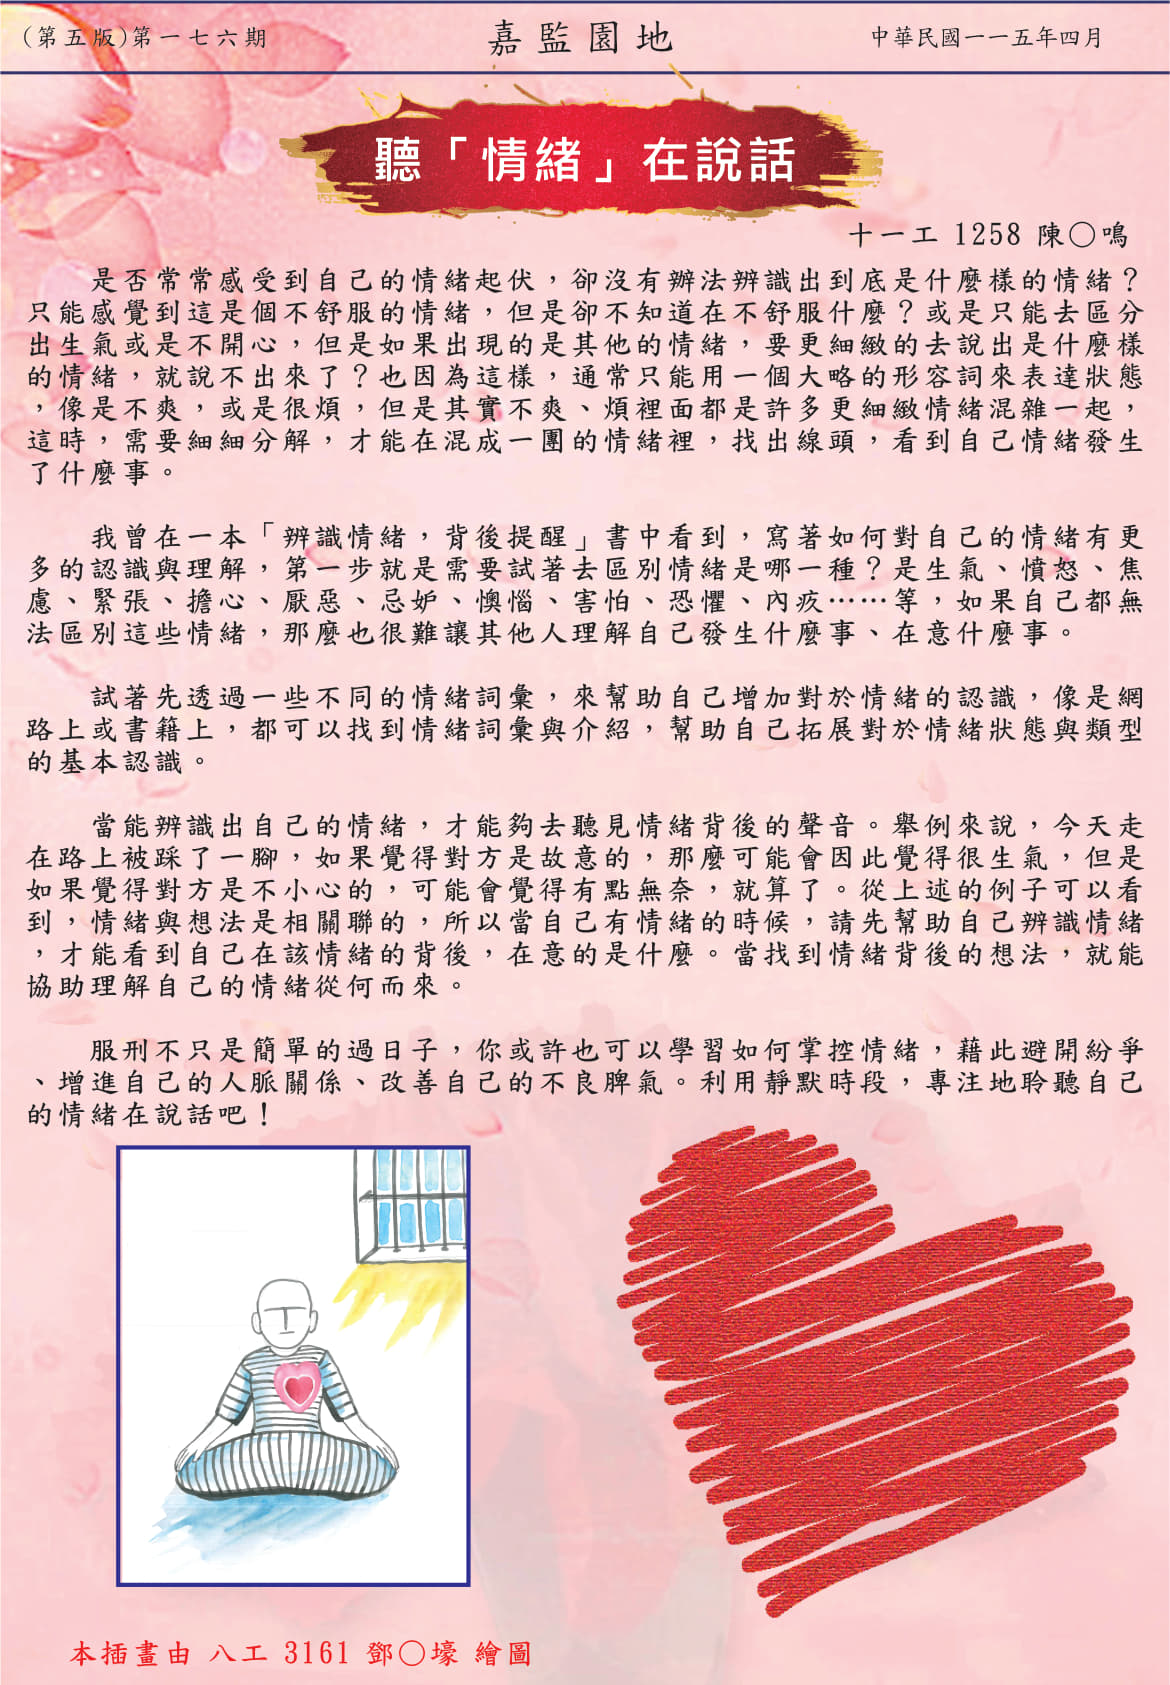 (第五版)第一七六期
嘉監園地
中華民國一一五年四月
聽「情緒」在說話
十一工 1258 陳〇鳴
是否常常感受到自己的情緒起伏，卻沒有辦法辨識出到底是什麼樣的情緒？
只能感覺到這是個不舒服的情緒，但是卻不知道在不舒服什麼？或是只能去區分
出生氣或是不開心，但是如果出現的是其他的情緒，要更細緻的去說出是什麼樣
的情緒，就說不出來了？也因為這樣，通常只能用一個大略的形容詞來表達狀態
，像是不爽，或是很煩，但是其實不爽、煩裡面都是許多更細緻情緒混雜一起，
這時，需要細細分解，才能在混成一團的情緒裡，找出線頭，看到自己情緒發生
了什麼事。
我曾在一本「辨識情緒，背後提醒」書中看到，寫著如何對自己的情緒有更
多的認識與理解，第一步就是需要試著去區別情緒是哪一種？是生氣、憤怒、焦
慮、緊張、擔心、厭惡、忌妒、懊惱、害怕、恐懼、內疚……等，如果自己都無
法區別這些情緒，那麼也很難讓其他人理解自己發生什麼事、在意什麼事。
試著先透過一些不同的情緒詞彙，來幫助自己增加對於情緒的認識，像是網
路上或書籍上，都可以找到情緒詞彙與介紹，幫助自己拓展對於情緒狀態與類型
的基本認識。
當能辨識出自己的情緒，才能夠去聽見情緒背後的聲音。舉例來說，今天走
在路上被踩了一腳，如果覺得對方是故意的，那麼可能會因此覺得很生氣，但是
如果覺得對方是不小心的，可能會覺得有點無奈，就算了。從上述的例子可以看
到，情緒與想法是相關聯的，所以當自己有情緒的時候，請先幫助自己辨識情緒
，才能看到自己在該情緒的背後，在意的是什麼。當找到情緒背後的想法，就能
協助理解自己的情緒從何而來。
服刑不只是簡單的過日子，你或許也可以學習如何掌控情緒，藉此避開紛爭
、增進自己的人脈關係、改善自己的不良脾氣。利用靜默時段，專注地聆聽自己
的情緒在說話吧！
本插畫由 八工 3161 鄧〇壕 繪圖